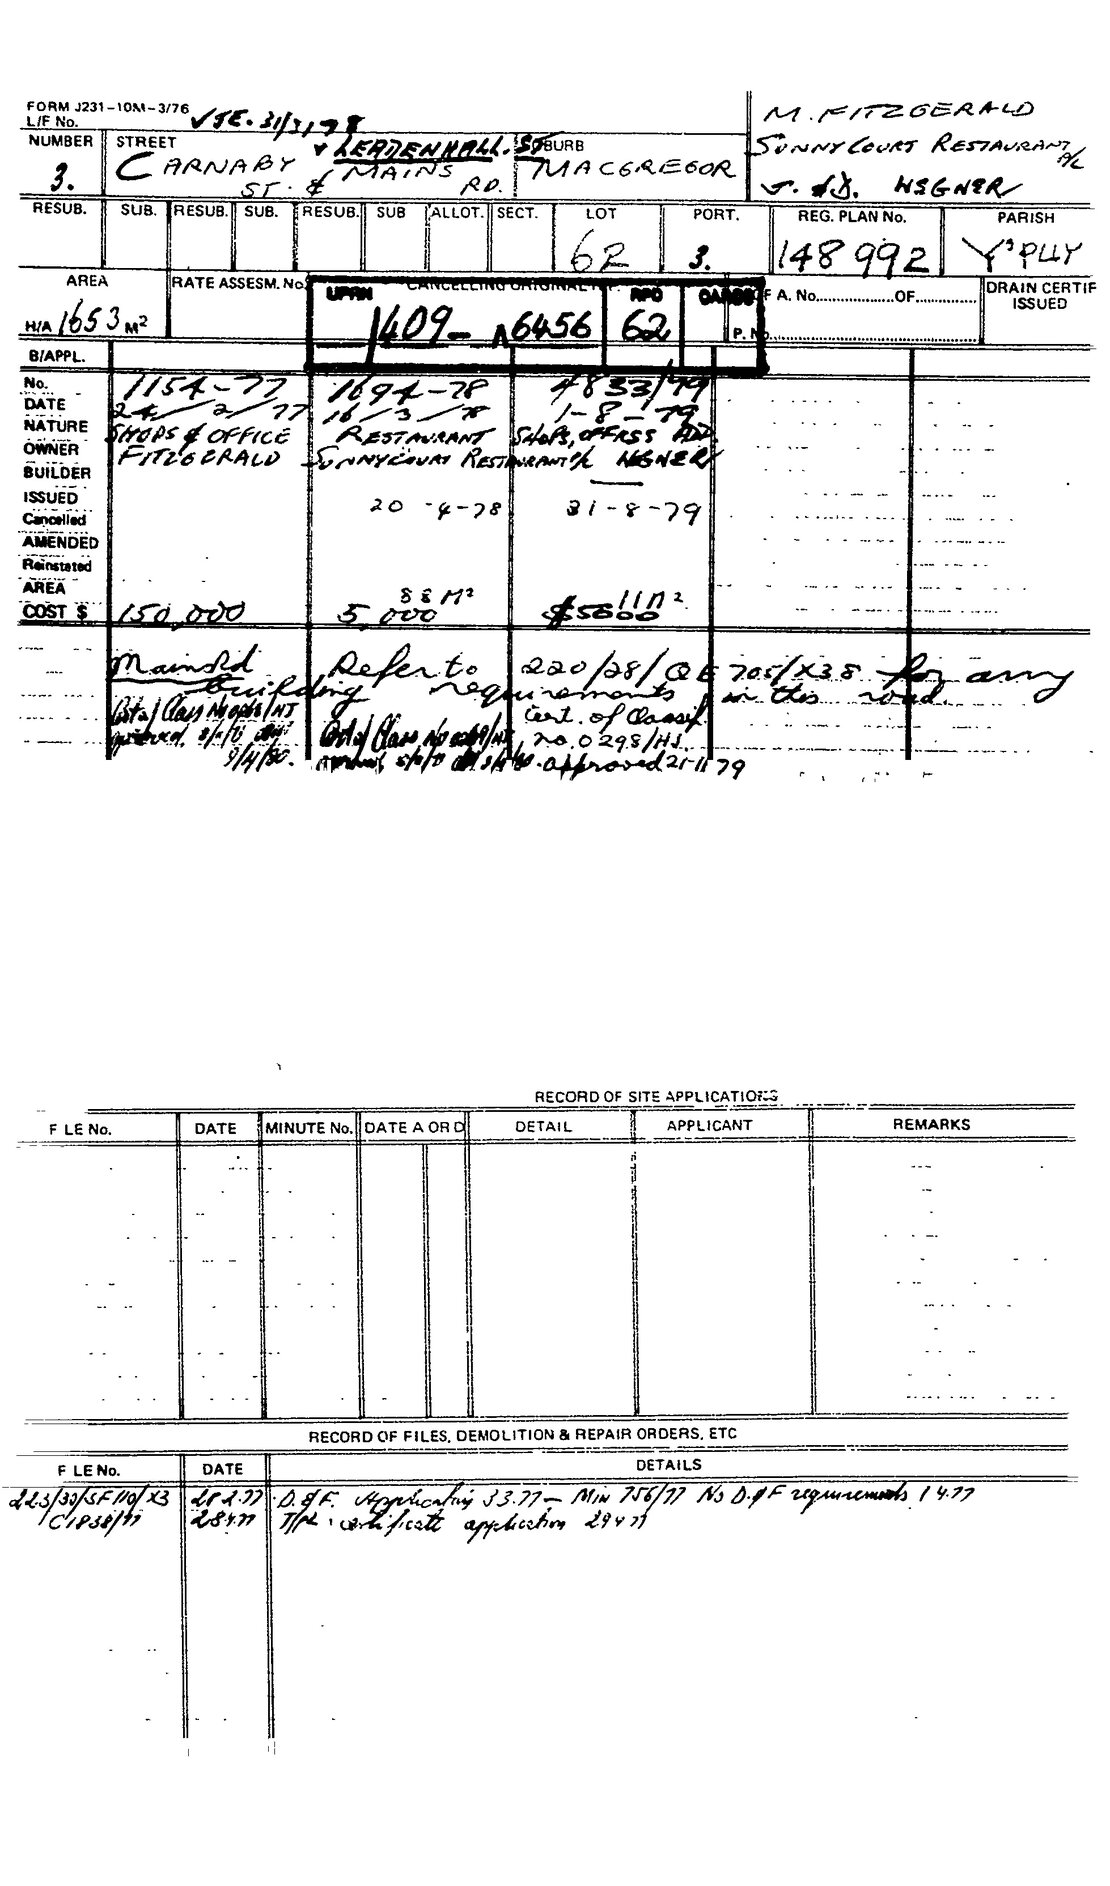 FORM J231-10M-3/76
L/F No. 31/3/78
M. FITZGERALD
SUNNYCOURT RESTAURANT P/L
HEGNER
NUMBER STREET SUBURB
3. CARNABY ST. & LEADENHALL. ST MAINS RD. MACGREGOR
RESUB. SUB. RESUB. SUB. RESUB. SUB ALLOT. SECT. LOT PORT. REG. PLAN No. PARISH
62 3. 148992
AREA RATE ASSESM. No. CANCELLING ORIGINAL F A. No. OF DRAIN CERTIF ISSUED
UPRN RPD CARDS
H/A 1653 M² 1409 - 6456 62 P. No.
B/APPL.
No. 1154-77 1694-78 4833/79
DATE 24/2/77 16/3/78 1-8-79
NATURE SHOPS & OFFICE RESTAURANT SHOPS, ADD.
OWNER FITZGERALD SUNNYCOURT RESTAURANT P/L HEGNER
BUILDER
ISSUED 20-4-78 31-8-79
Cancelled
AMENDED
Reinstated
AREA 88 M² 11 M²
COST $ 150,000 5,000 $5000
Mains Rd Refer to 220/28/QE705/X38 for any
building requirements in this road.
Class Class Cert. of Classif.
no. 0298/HJ
9/4/80. approved 21-11-79
RECORD OF SITE APPLICATIONS
F LE No. DATE MINUTE No. DATE A OR D DETAIL APPLICANT REMARKS
RECORD OF FILES, DEMOLITION & REPAIR ORDERS, ETC
F LE No. DATE DETAILS
223/30/SF110/X3 28 2.77 D. & F. Application 3 3.77 - Min 756/77 No D. & F requirements 1 4.77
28 4 77 certificate application 29 4 77